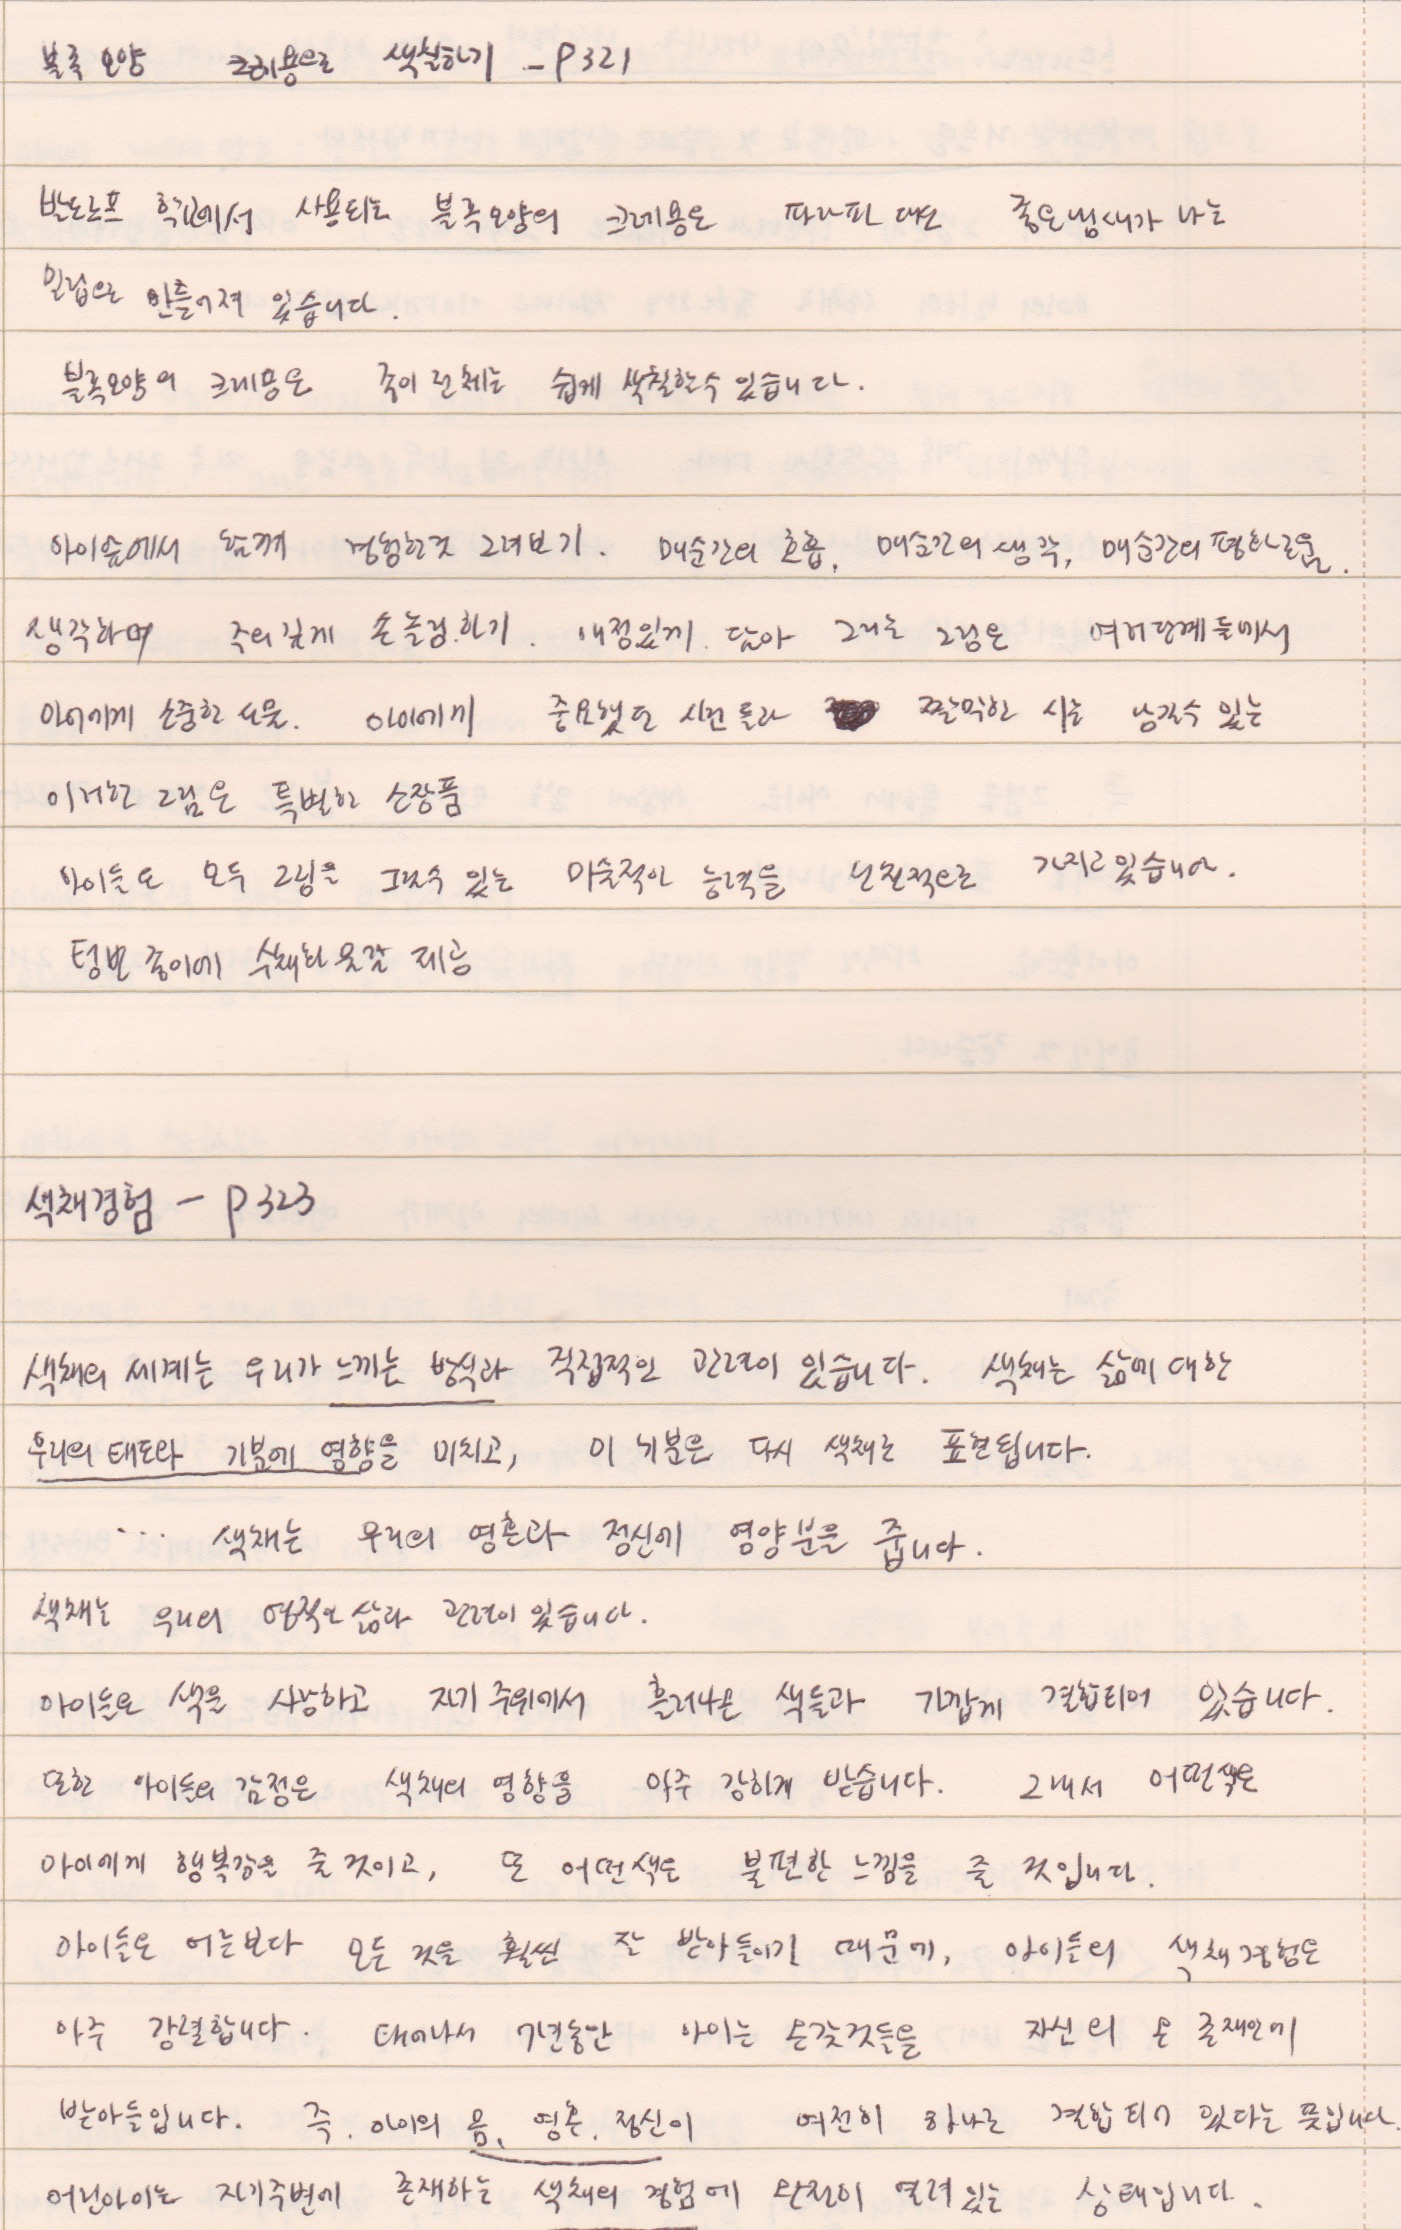 블록모양 크레용으로 색칠하기 - P321
발도르프 학교에서 사용되는 블록모양의 크레용은 파라핀 대신 좋은냄새가 나는
밀랍으로 만들어져 있습니다.
블록모양의 크레용은 종이 전체를 쉽게 색칠할수 있습니다.
아이숲에서 함께 경험한것 그려보기. 매순간의 호흡, 매순간의 생각, 매순간의 평화로움.
생각하며 주의깊게 손놀림.하기. 애정있게 담아 그리는 그림은 여러단계들에서
아이에게 소중한 선물. 아이에게 중요했던 시건들과 짤막한 시를 남길수 있는
이러한 그림은 특별한 소장품
아이들은 모두 그림을 그릴수 있는 미술적인 능력을 선천적으로 가지고 있습니다.
텅빈 종이에 수채화 물감 제공
색채경험 - P323
색채의 세계는 우리가 느끼는 방식과 직접적인 관련이 있습니다. 색채는 삶에 대한
우리의 태도와 기분에 영향을 미치고, 이 기분은 다시 색채로 표현됩니다.
... 색채는 우리의 영혼과 정신에 영양분을 줍니다.
색채는 우리의 영적인 삶과 관련이 있습니다.
아이들은 색을 사랑하고 자기 주위에서 흘러나온 색들과 가깝게 결합되어 있습니다.
또한 아이들의 감정은 색채의 영향을 아주 강하게 받습니다. 그래서 어떤색은
아이에게 행복감을 줄 것이고, 또 어떤색은 불편한 느낌을 줄 것입니다.
아이들은 어른보다 모든 것을 훨씬 잘 받아들이기 때문에, 아이들의 색채경험은
아주 강렬합니다. 태어나서 7년동안 아이는 온갖것들을 자신의 온 존재안에
받아들입니다. 즉, 아이의 몸, 영혼, 정신이 여전히 하나로 결합되어 있다는 뜻입니다.
어린아이는 자기주변에 존재하는 색채의 경험에 완전히 열려있는 상태입니다.